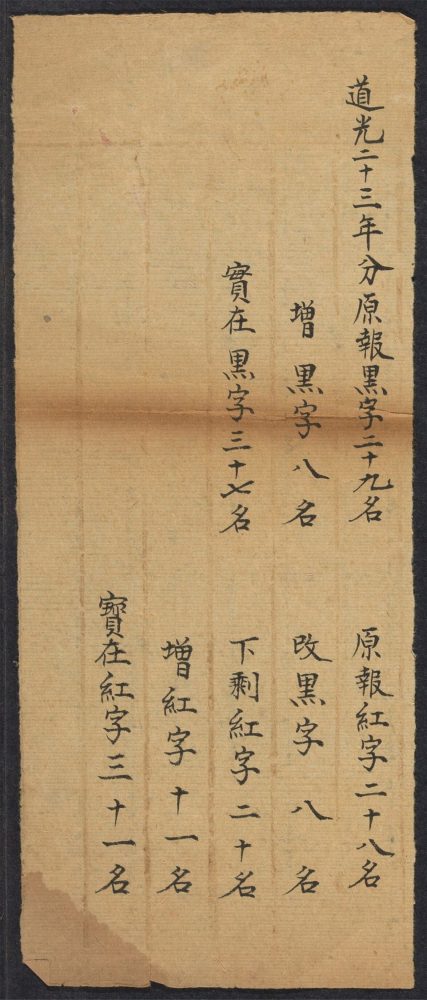 道光二十三年分原報黒字二十九名
原報紅字二十八名
增黒字八名
改黒字八名
實在黒字三十七名
下剩紅字二十名
增紅字十一名
實在紅字三十一名